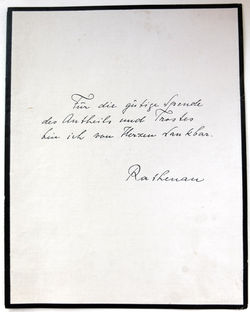 Für die gütige Spende
des Antheils und Trostes
bin ich von Herzen dankbar.
Rathenau